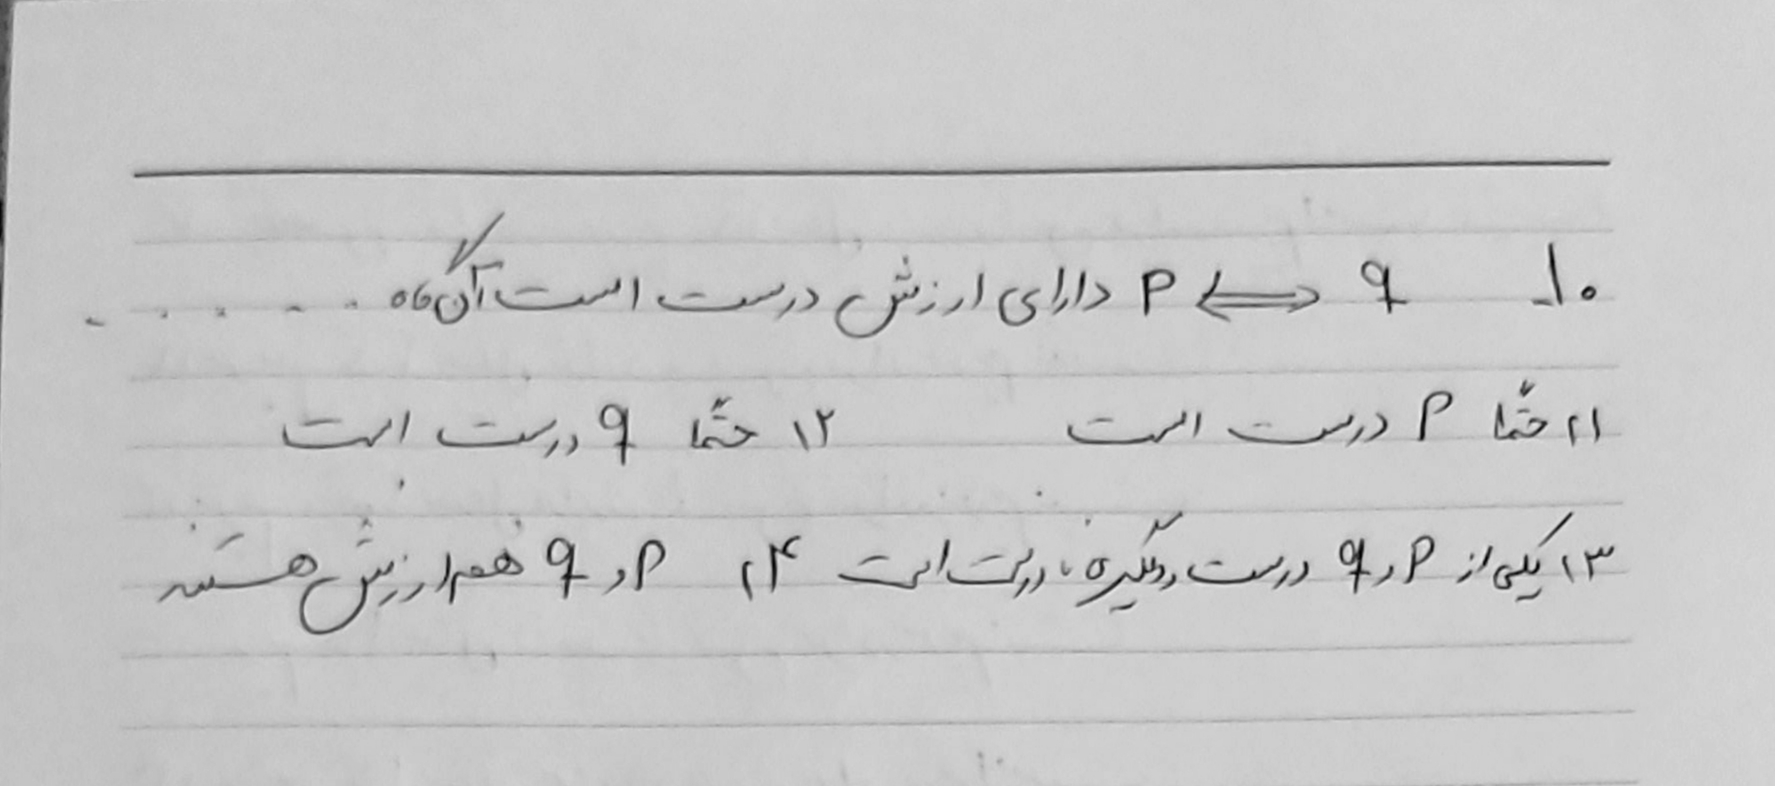 ۱۰- p ⟺ q دارای ارزش درست است آن‌گاه . . . . .
۱) حتماً p درست است ۲) حتماً q درست است
۳) یکی از p و q درست و دیگری نادرست است ۴) p و q هم ارزش هستند